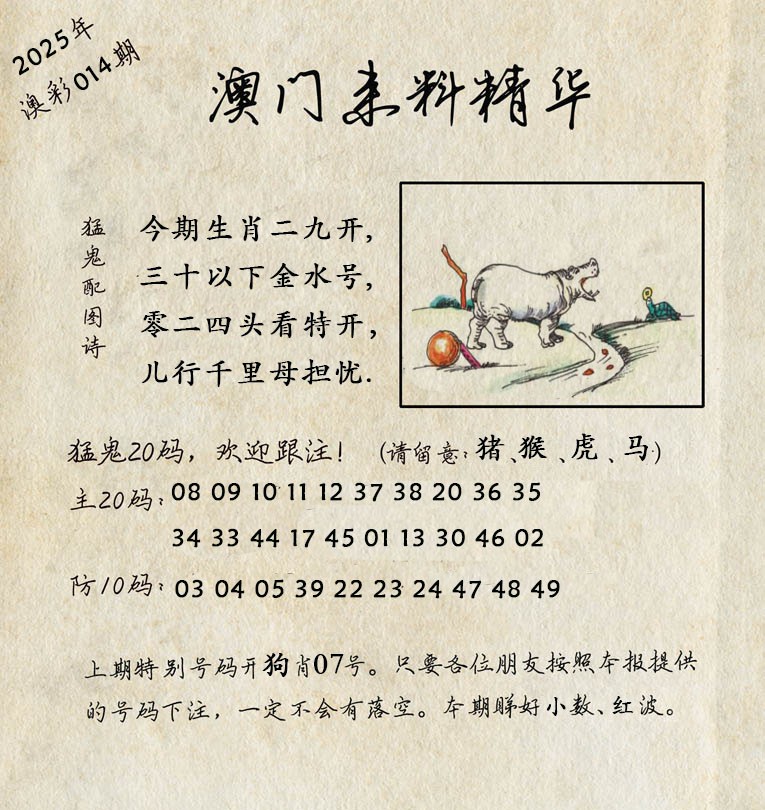 2025年
澳彩014期
澳门来料精华
猛鬼配图诗
今期生肖二九开,
三十以下金水号,
零二四头看特开,
儿行千里母担忧.
猛鬼20码，欢迎跟注！（请留意：猪、猴、虎、马）
主20码：08 09 10 11 12 37 38 20 36 35
34 33 44 17 45 01 13 30 46 02
防10码：03 04 05 39 22 23 24 47 48 49
上期特别号码开狗肖07号。只要各位朋友按照本报提供
的号码下注，一定不会有落空。本期睇好小数、红波。